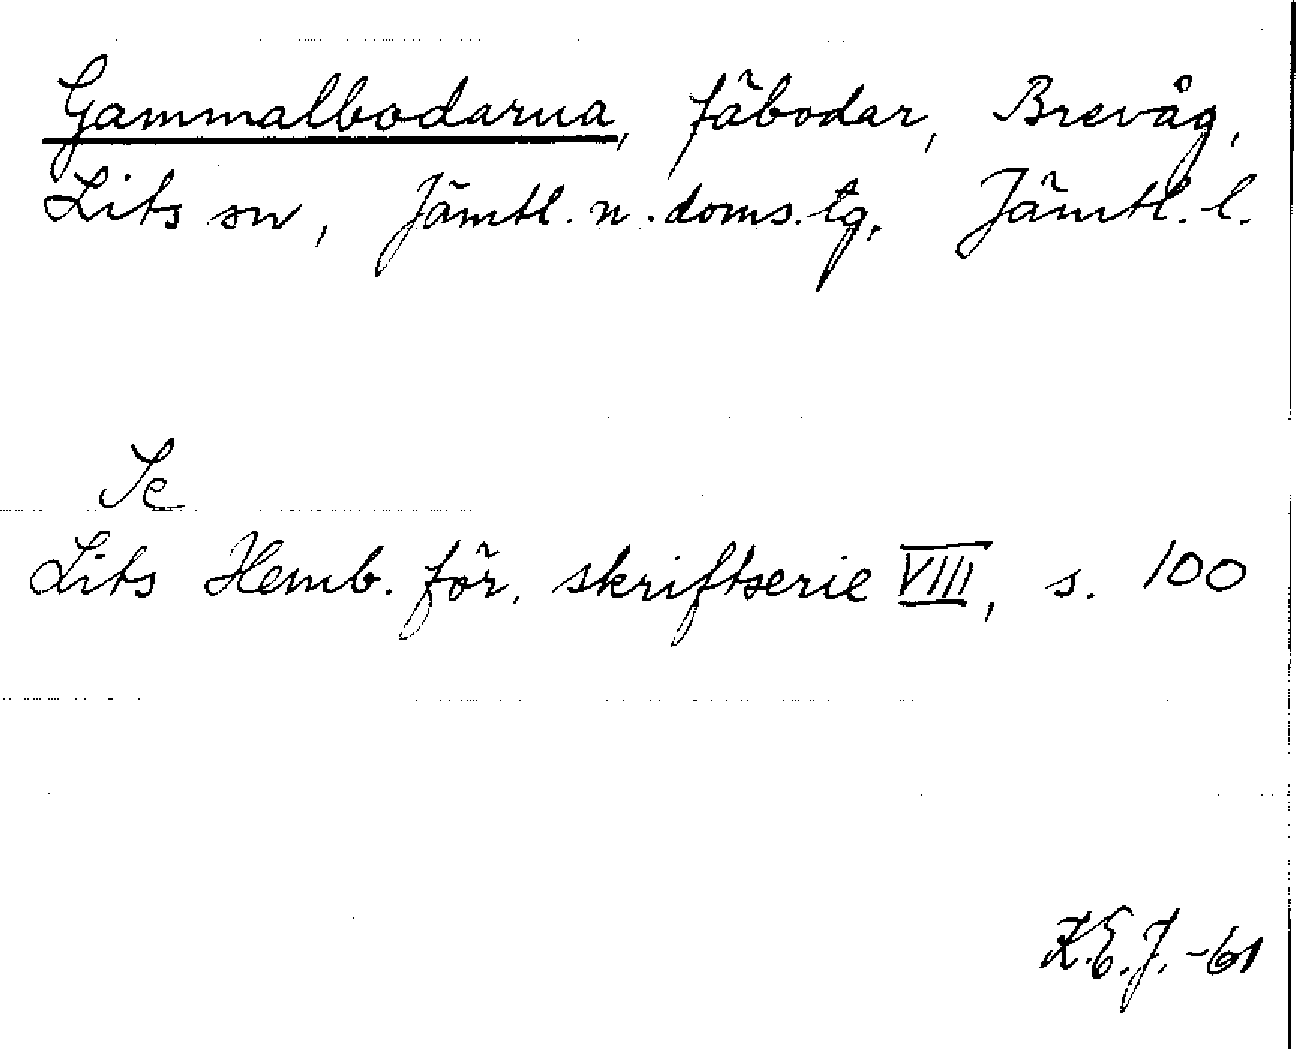 Gammalbodarna, fäbodar, Brevåg,
Lits sn, Jämtl. n. doms. tg. Jämtl. l.
Se
Lits Hemb. för. skriftserie VIII, s. 100
K.E.J. -61